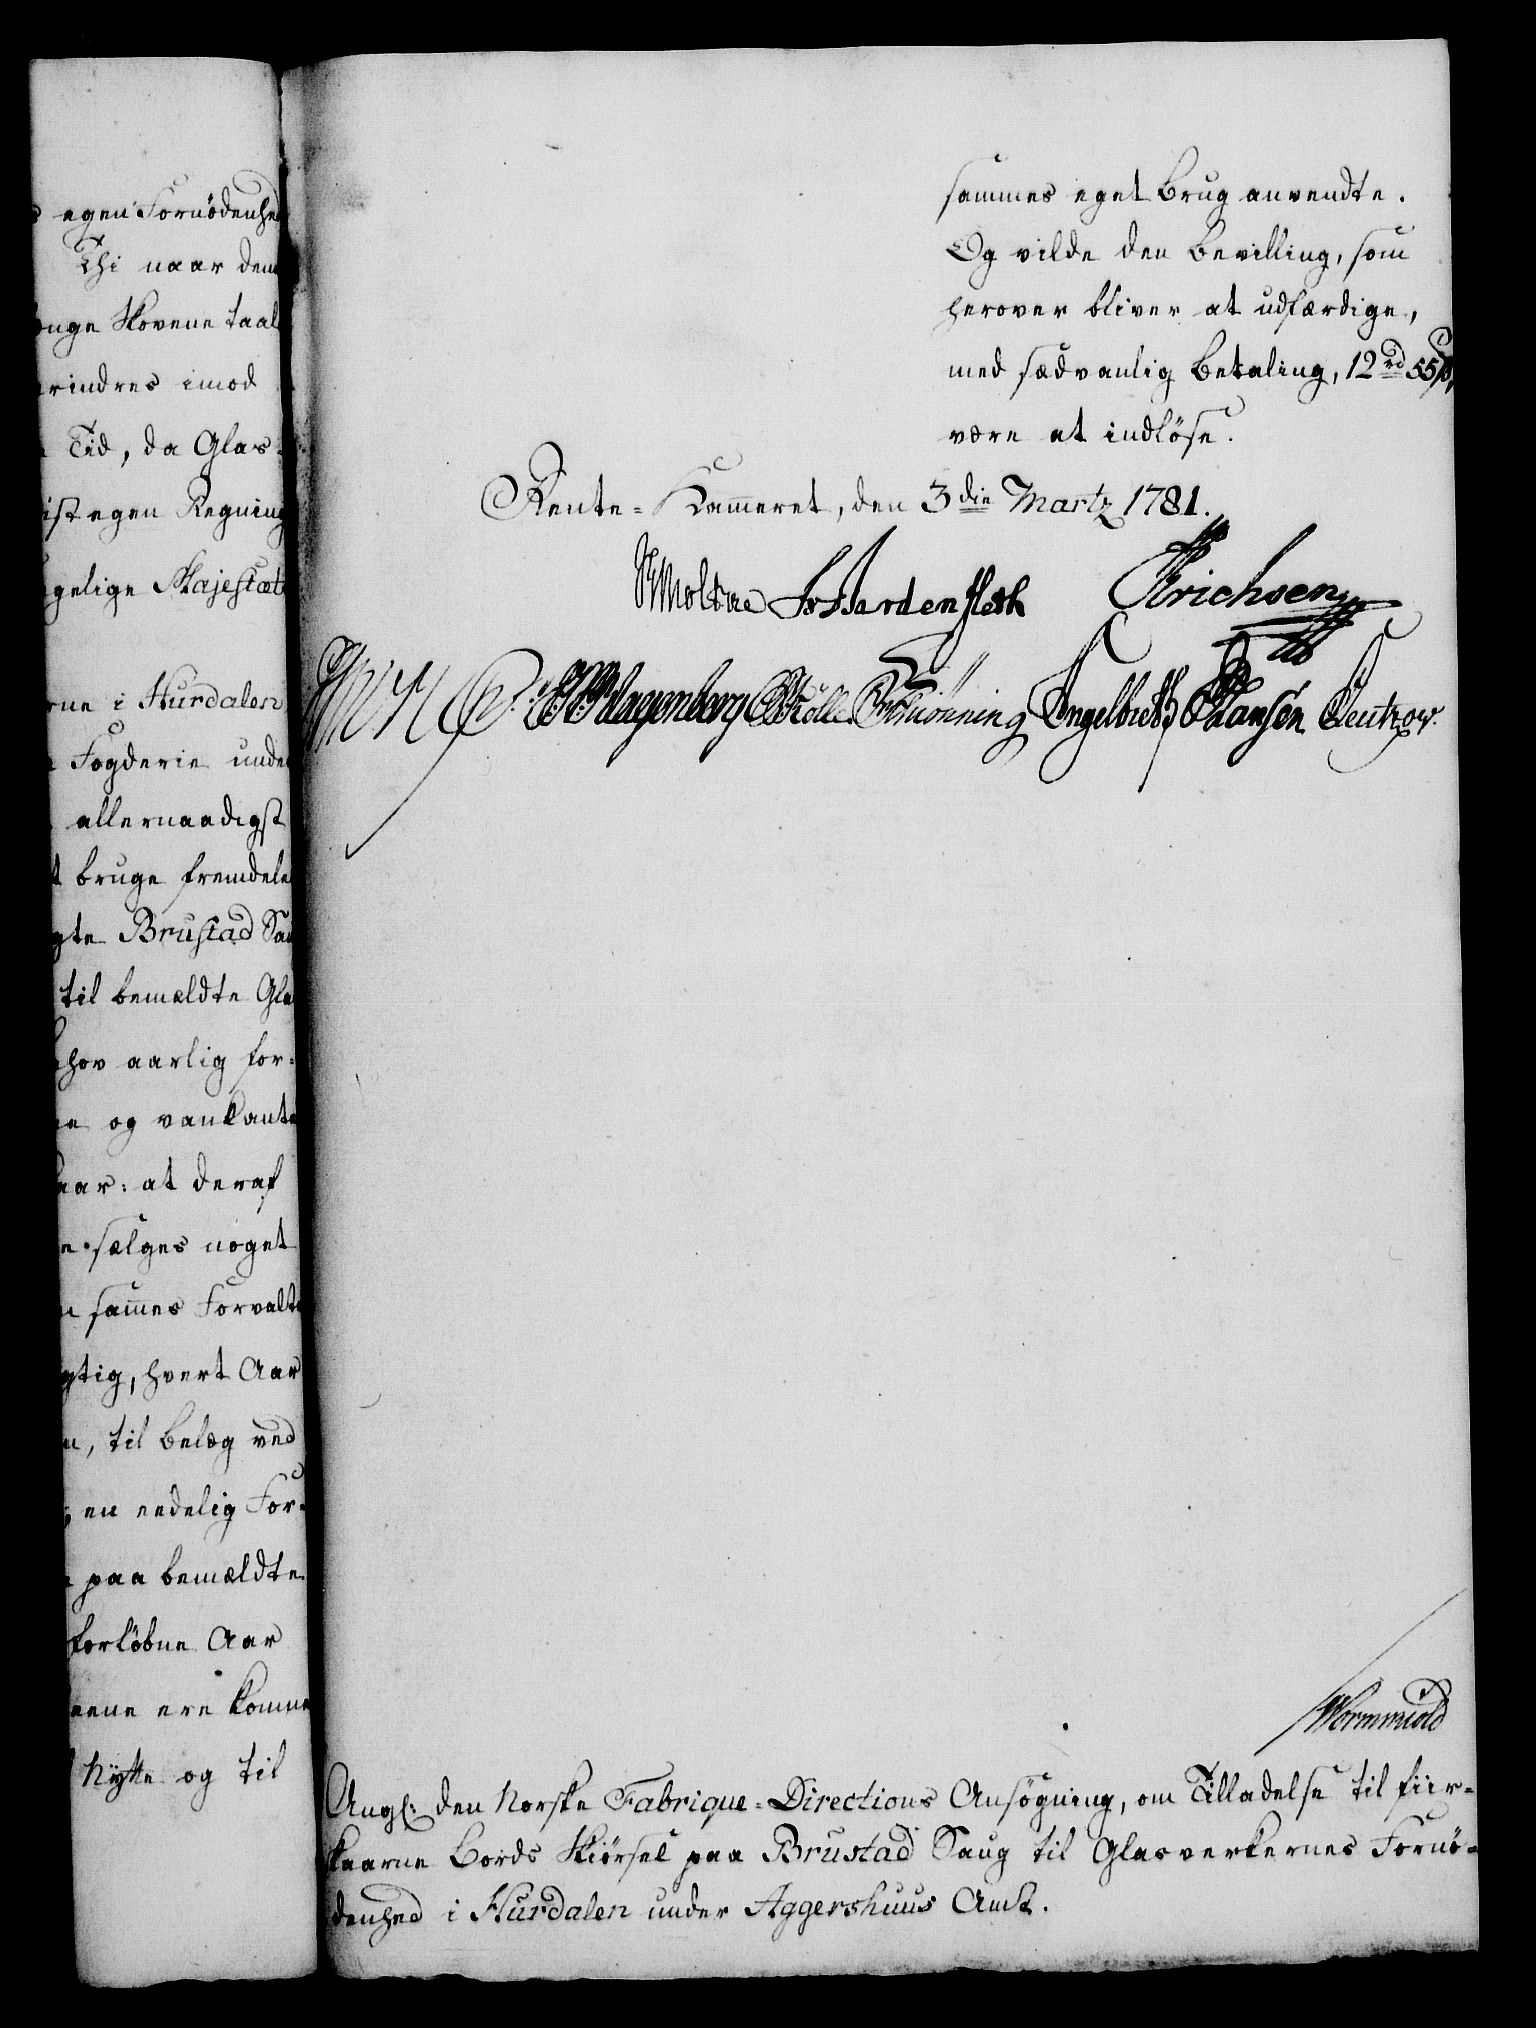 egen Fornödenhed
Thi naar dem
Skovene taal
imod
Tid, da Glas-
egen Regning
Majestæt
i Hurdalen
Fogderie under
allernaadigst
bruge fremdeles
Brustad Sau
til bemældte Gla
aarlig for-
og vankante
at deraf
sælges noget
sam̄es Forvalte
hvert Aar
til Belæg ved
en eedelig For-
paa bemældte
forløbne Aar
ere komne
Nytte og til
sammes eget Brug anvendte.
Og vilde den Bevilling, som
herover bliver at udfærdige,
med sædvanlig Betaling, 12 rd 55 s,
være at indløse.
Rente-Kam̄eret, den 3die Martz 1781.
Moltke Bardenfleth Erichsen
Klagenberg Kølle Schiønning Engelbreth Hansen Leutzow.
Wormskiold
Angl: den Norske Fabrique-Directions Ansøgning, om Tilladelse til fiir-
skaarne Bords Skiørsel paa Brustad Saug til Glasverkernes Fornø-
denhed i Hurdalen under Aggershuus Amt.